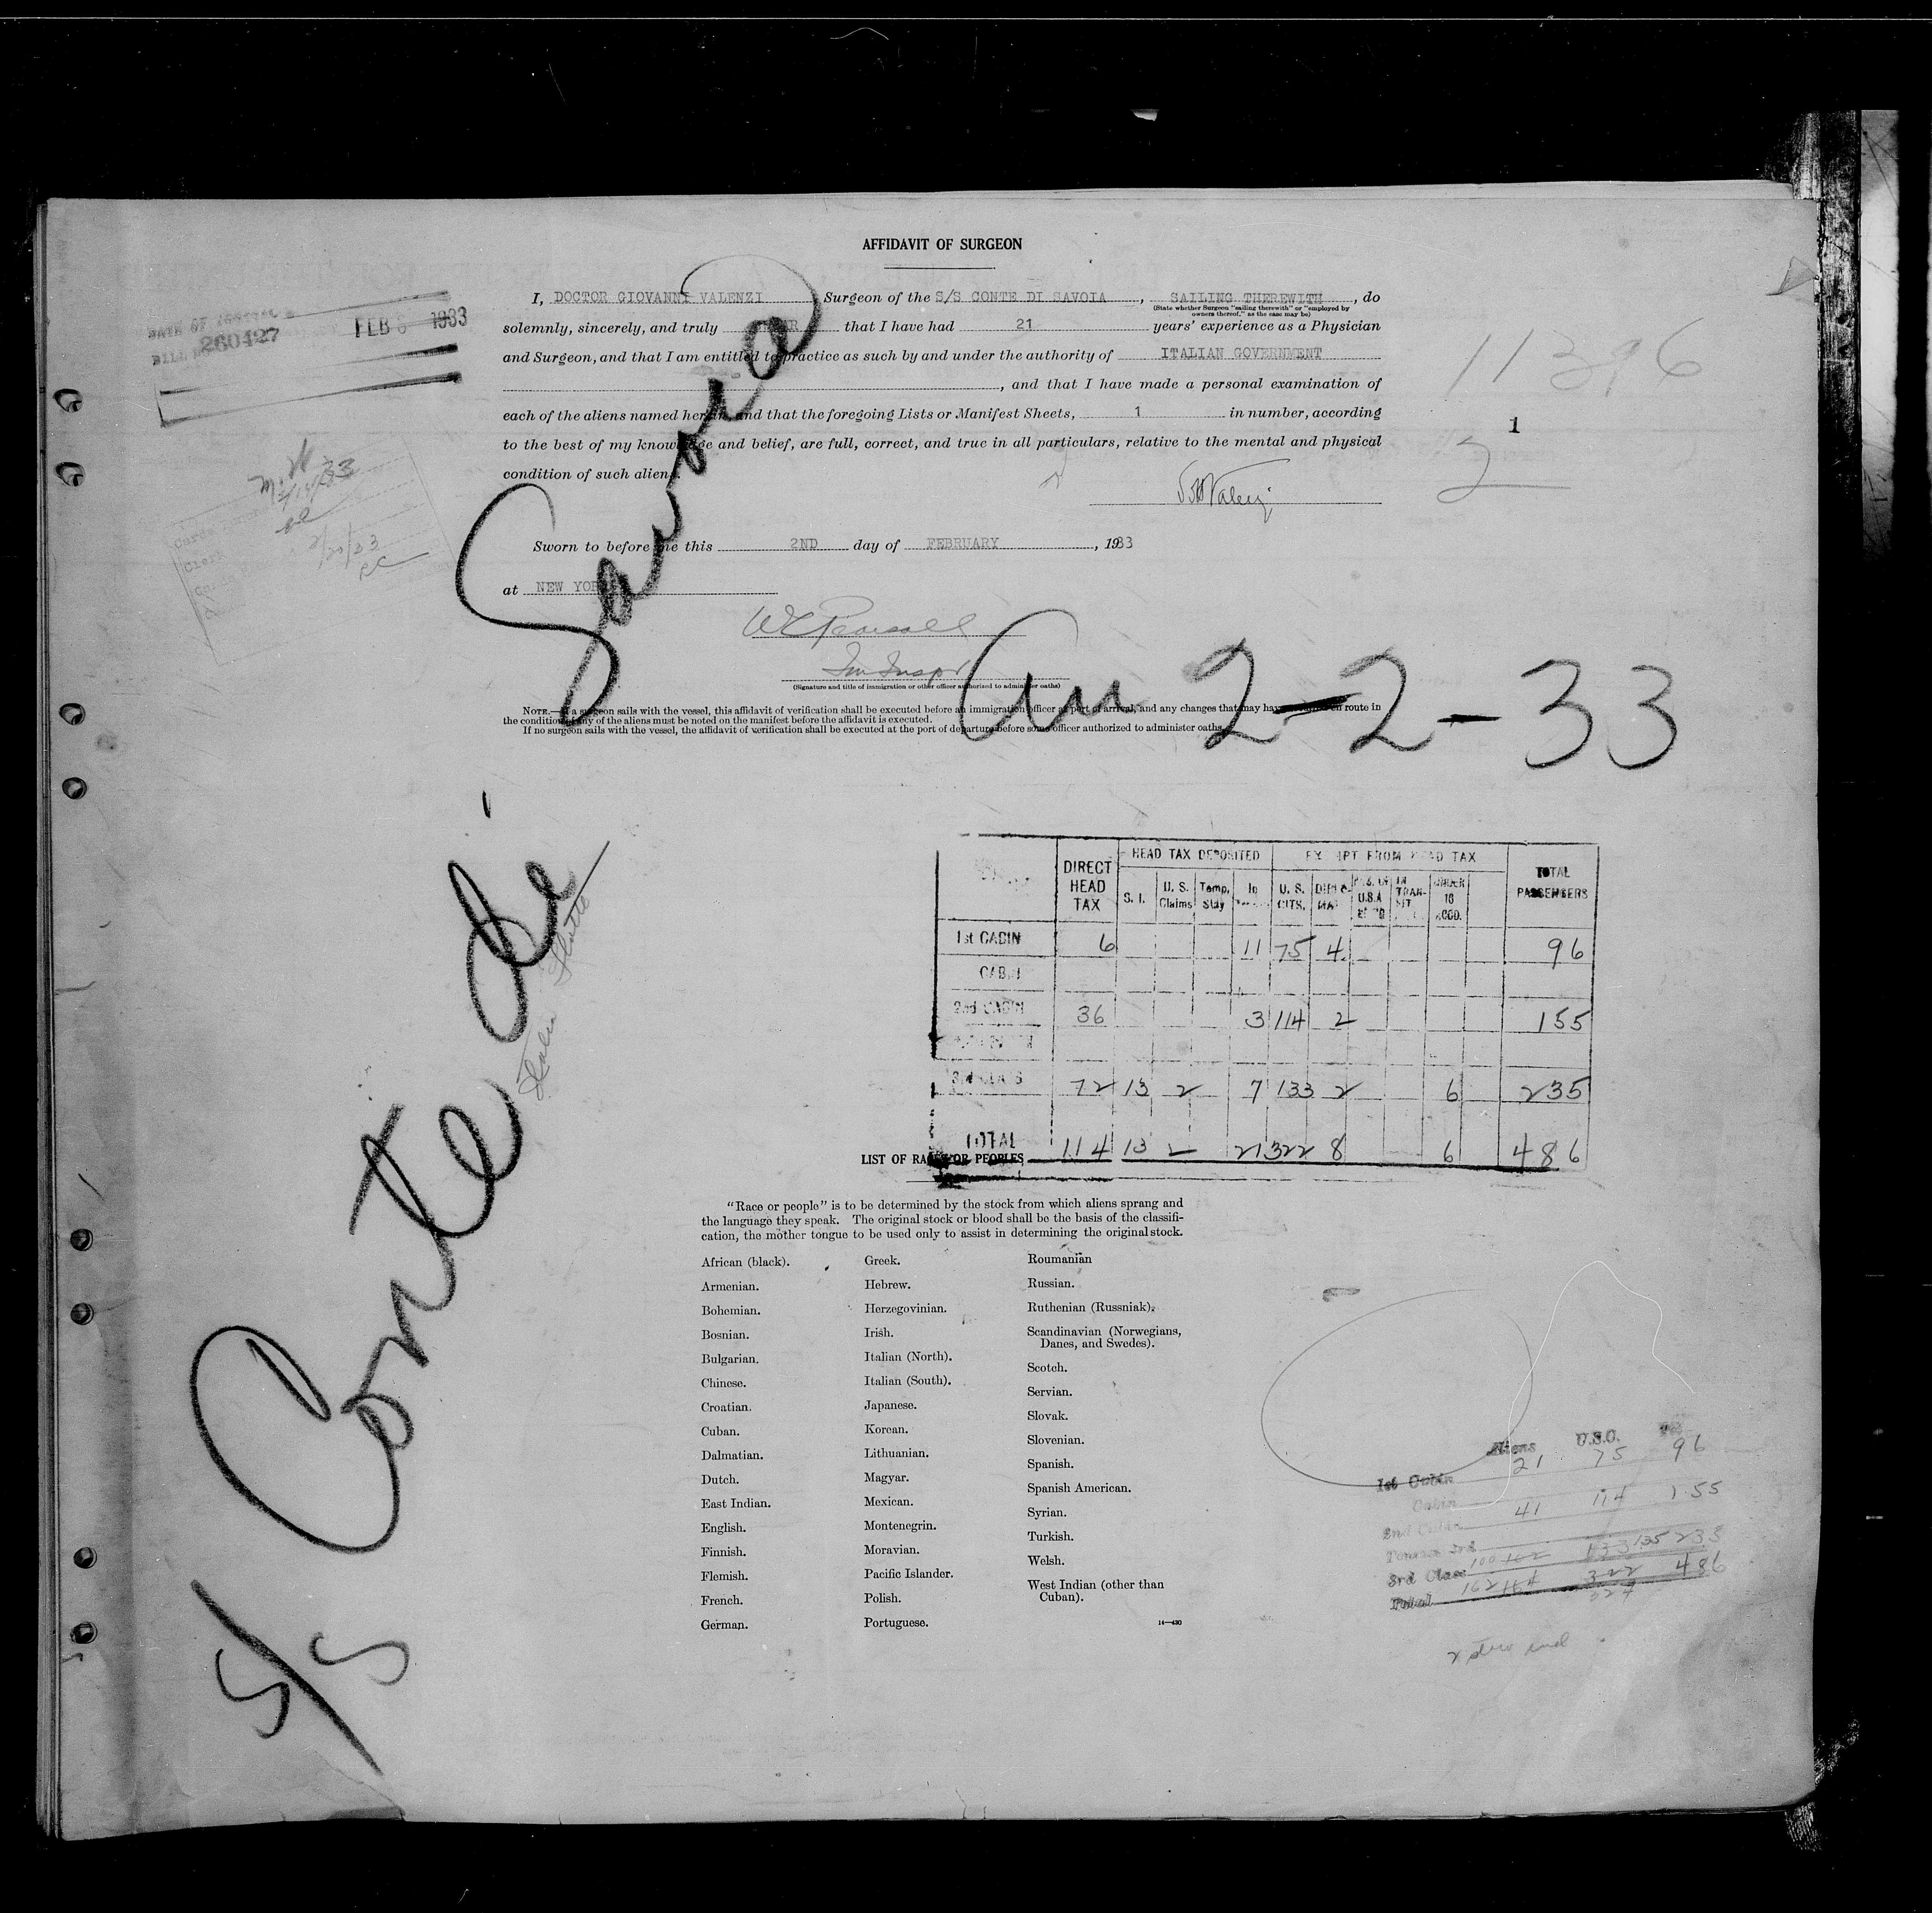 AFFIDAVIT OF SURGEON
I, DOCTOR GIOVANNI VALENZI Surgeon of the S/S CONTE DI SAVOIA, SAILING THEREWITH, do
(State whether Surgeon "sailing therewith" or "employed by
owners thereof," as the case may be)
solemnly, sincerely, and truly that I have had 21 years' experience as a Physician
and Surgeon, and that I am entitled to practice as such by and under the authority of ITALIAN GOVERNMENT
, and that I have made a personal examination of
each of the aliens named herein, and that the foregoing Lists or Manifest Sheets, 1 in number, according
to the best of my knowledge and belief, are full, correct, and true in all particulars, relative to the mental and physical
condition of such aliens.
260427
FEB 1933
11396
1
2
2/20/33
Sworn to before me this 2ND day of FEBRUARY, 1933
at NEW YORK
W C Pearsall
Im Inspr
(Signature and title of immigration or other officer authorized to administer oaths)
NOTE.—If a surgeon sails with the vessel, this affidavit of verification shall be executed before an immigration officer at port of arrival, and any changes that may have en route in
the condition of any of the aliens must be noted on the manifest before the affidavit is executed.
If no surgeon sails with the vessel, the affidavit of verification shall be executed at the port of departure before some officer authorized to administer oaths.
S/S Conte di Savoia
2-2-33
DIRECT HEAD TAX HEAD TAX DEPOSITED EXEMPT FROM HEAD TAX TOTAL PASSENGERS
S. I. U. S. Claims Temp. Stay In U. S. CITS. U.S.A IN TRANSIT UNDER 16 ACCD.
1st CABIN 6 11 75 4 96
CABIN
2nd CABIN 36 3 114 2 155
3rd CLASS 72 13 2 7 133 2 6 235
TOTAL 114 13 2 21 322 8 6 486
LIST OF RACES OR PEOPLES
"Race or people" is to be determined by the stock from which aliens sprang and
the language they speak. The original stock or blood shall be the basis of the classifi-
cation, the mother tongue to be used only to assist in determining the original stock.
African (black).
Armenian.
Bohemian.
Bosnian.
Bulgarian.
Chinese.
Croatian.
Cuban.
Dalmatian.
Dutch.
East Indian.
English.
Finnish.
Flemish.
French.
German.
Greek.
Hebrew.
Herzegovinian.
Irish.
Italian (North).
Italian (South).
Japanese.
Korean.
Lithuanian.
Magyar.
Mexican.
Montenegrin.
Moravian.
Pacific Islander.
Polish.
Portuguese.
Roumanian
Russian.
Ruthenian (Russniak).
Scandinavian (Norwegians,
Danes, and Swedes).
Scotch.
Servian.
Slovak.
Slovenian.
Spanish.
Spanish American.
Syrian.
Turkish.
Welsh.
West Indian (other than
Cuban).
14—430
Aliens U.S.C.
1st Cabin 21 75 96
Cabin
2nd Cabin 41 114 155
3rd Class 100 162 133 135 235
Total 162 164 322 324 486